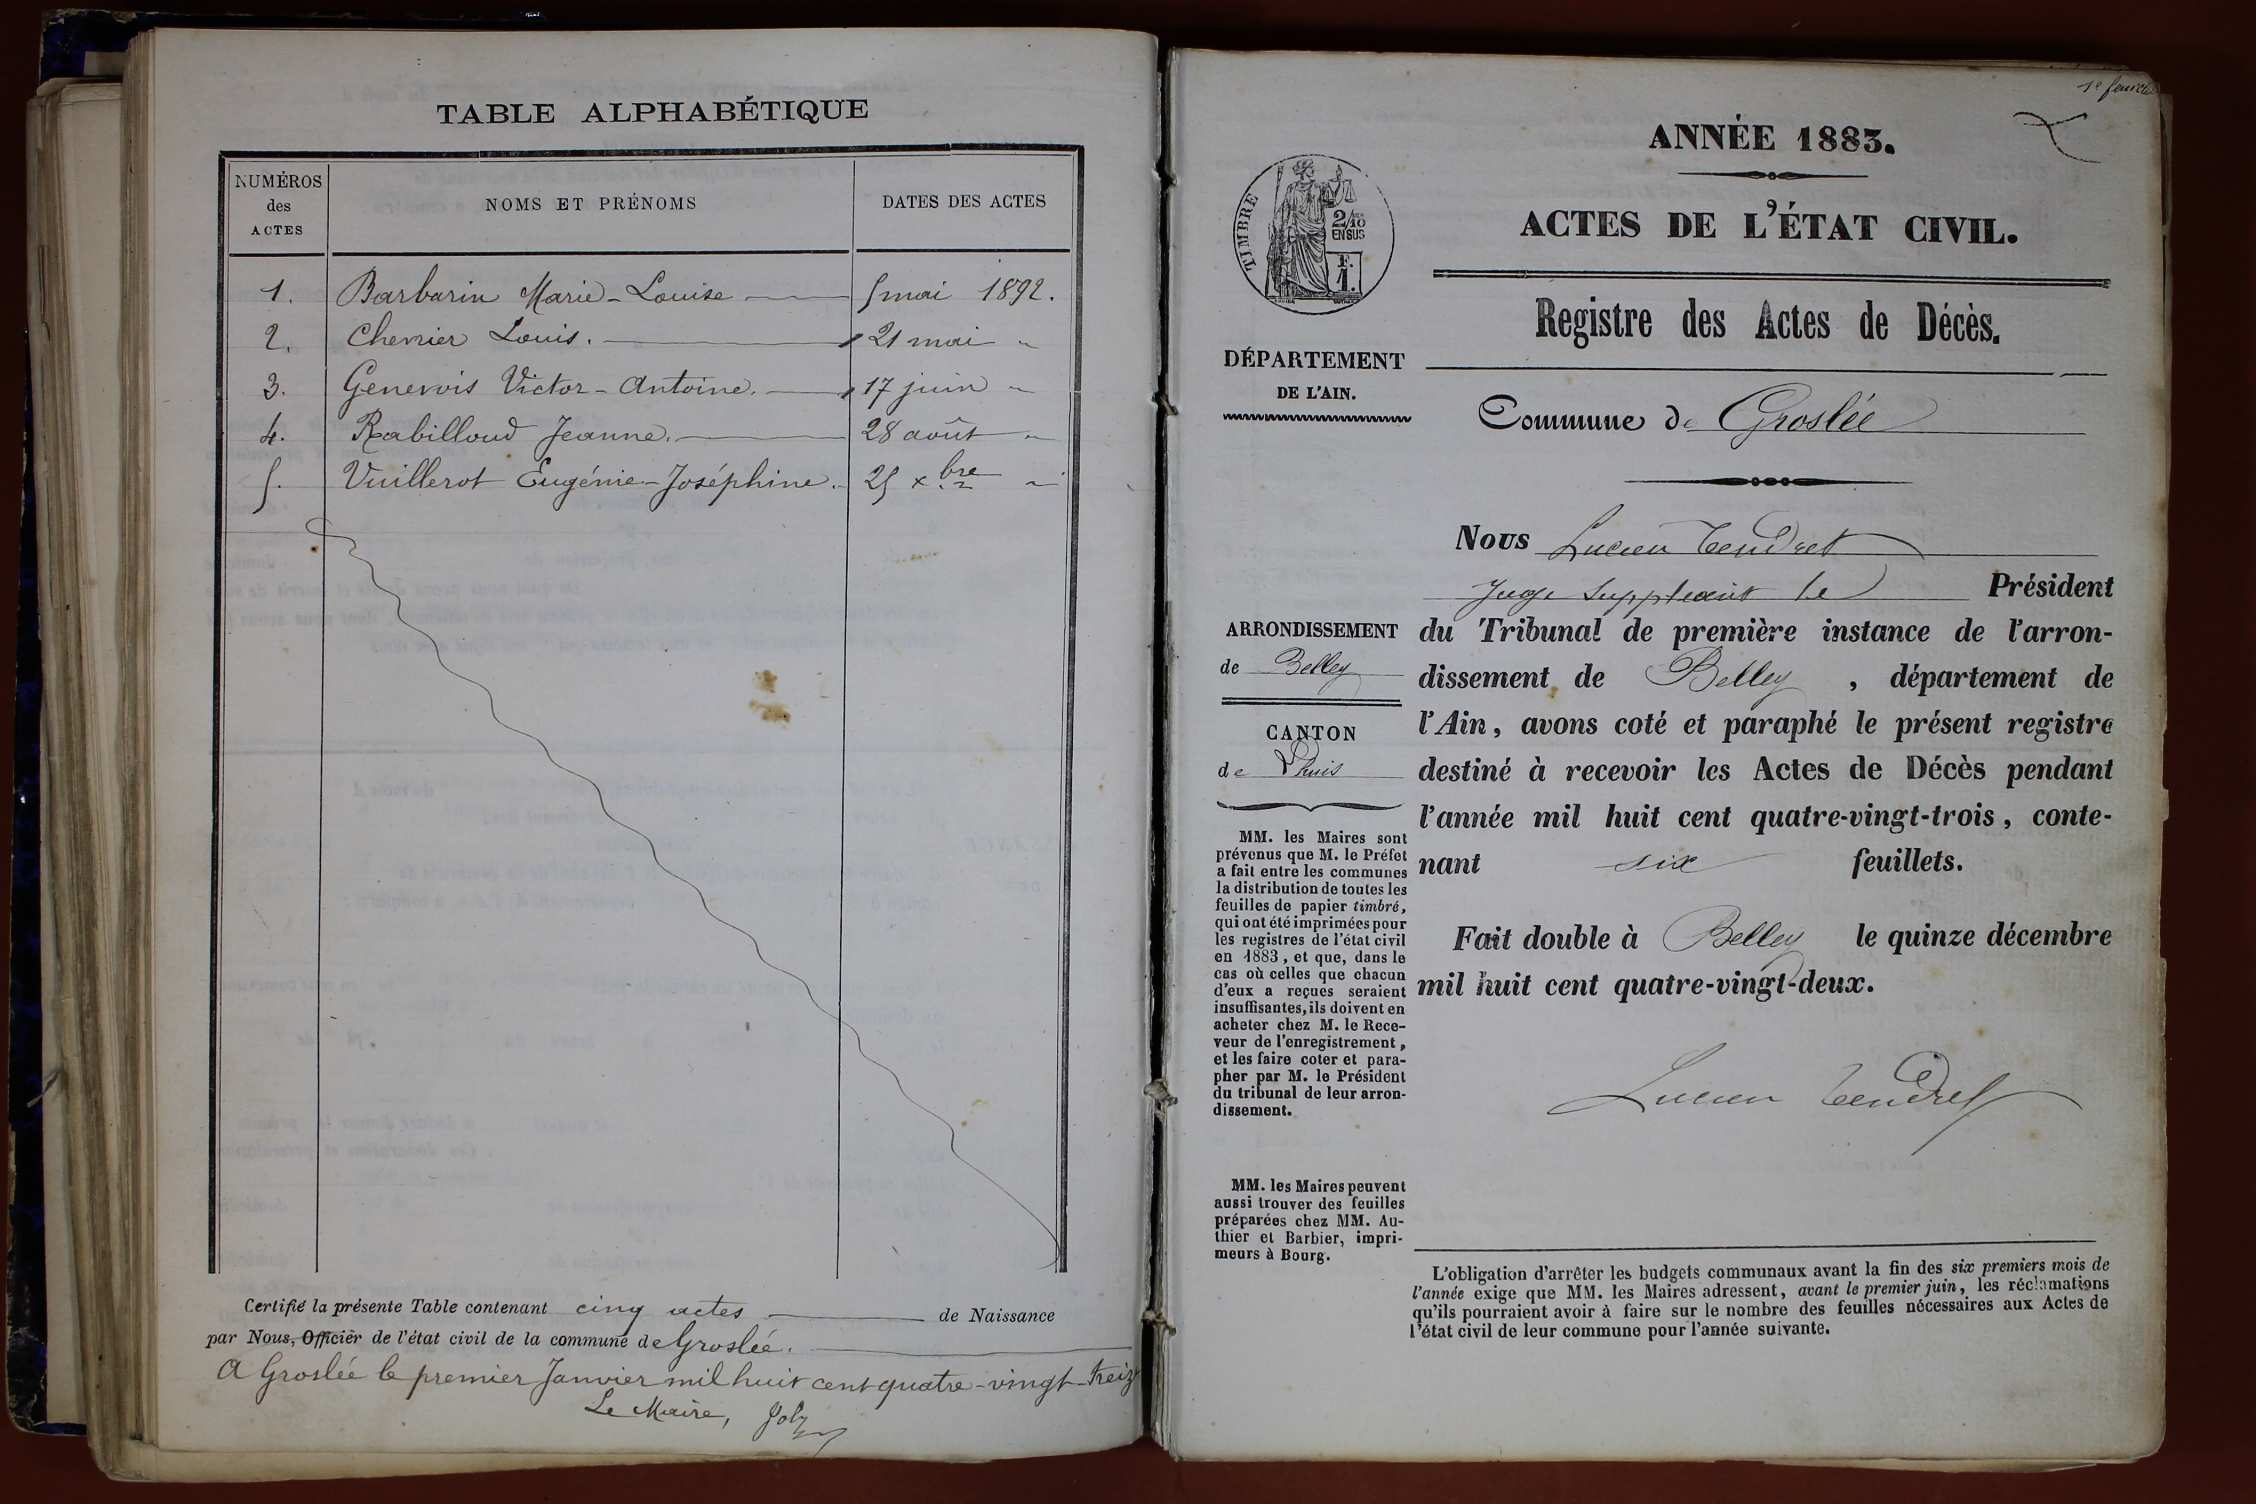 TABLE ALPHABÉTIQUE
NUMÉROS des ACTES | NOMS ET PRÉNOMS | DATES DES ACTES
1. Barbarin Marie-Louise 5 mai 1892.
2. Chenier Louis. 21 mai "
3. Genevois Victor-Antoine. 17 juin "
4. Rabilloud Jeanne. 28 août "
5. Vuillerot Eugénie-Joséphine. 25 xbre "
Certifié la présente Table contenant cinq actes de Naissance
par Nous, Officier de l'état civil de la commune de Groslée.
A Groslée le premier Janvier mil huit cent quatre-vingt-treize
Le Maire, Joly
ANNÉE 1883.
ACTES DE L'ÉTAT CIVIL.
TIMBRE
2/10
EN SUS
F.
1.
Registre des Actes de Décès.
DÉPARTEMENT
DE L'AIN.
Commune de Groslée
Nous Lucien Tendret
Juge Suppléant le Président
ARRONDISSEMENT
de Belley
CANTON
de Lhuis
du Tribunal de première instance de l'arron-
dissement de Belley, département de
l'Ain, avons coté et paraphé le présent registre
destiné à recevoir les Actes de Décès pendant
l'année mil huit cent quatre-vingt-trois, conte-
nant six feuillets.
Fait double à Belley le quinze décembre
mil huit cent quatre-vingt-deux.
Lucien Tendret
MM. les Maires sont
prévenus que M. le Préfet
a fait entre les communes
la distribution de toutes les
feuilles de papier timbré,
qui ont été imprimées pour
les registres de l'état civil
en 1883, et que, dans le
cas où celles que chacun
d'eux a reçues seraient
insuffisantes, ils doivent en
acheter chez M. le Rece-
veur de l'enregistrement,
et les faire coter et para-
pher par M. le Président
du tribunal de leur arron-
dissement.
MM. les Maires peuvent
aussi trouver des feuilles
préparées chez MM. Au-
thier et Barbier, impri-
meurs à Bourg.
L'obligation d'arrêter les budgets communaux avant la fin des six premiers mois de
l'année exige que MM. les Maires adressent, avant le premier juin, les réclamations
qu'ils pourraient avoir à faire sur le nombre des feuilles nécessaires aux Actes de
l'état civil de leur commune pour l'année suivante.